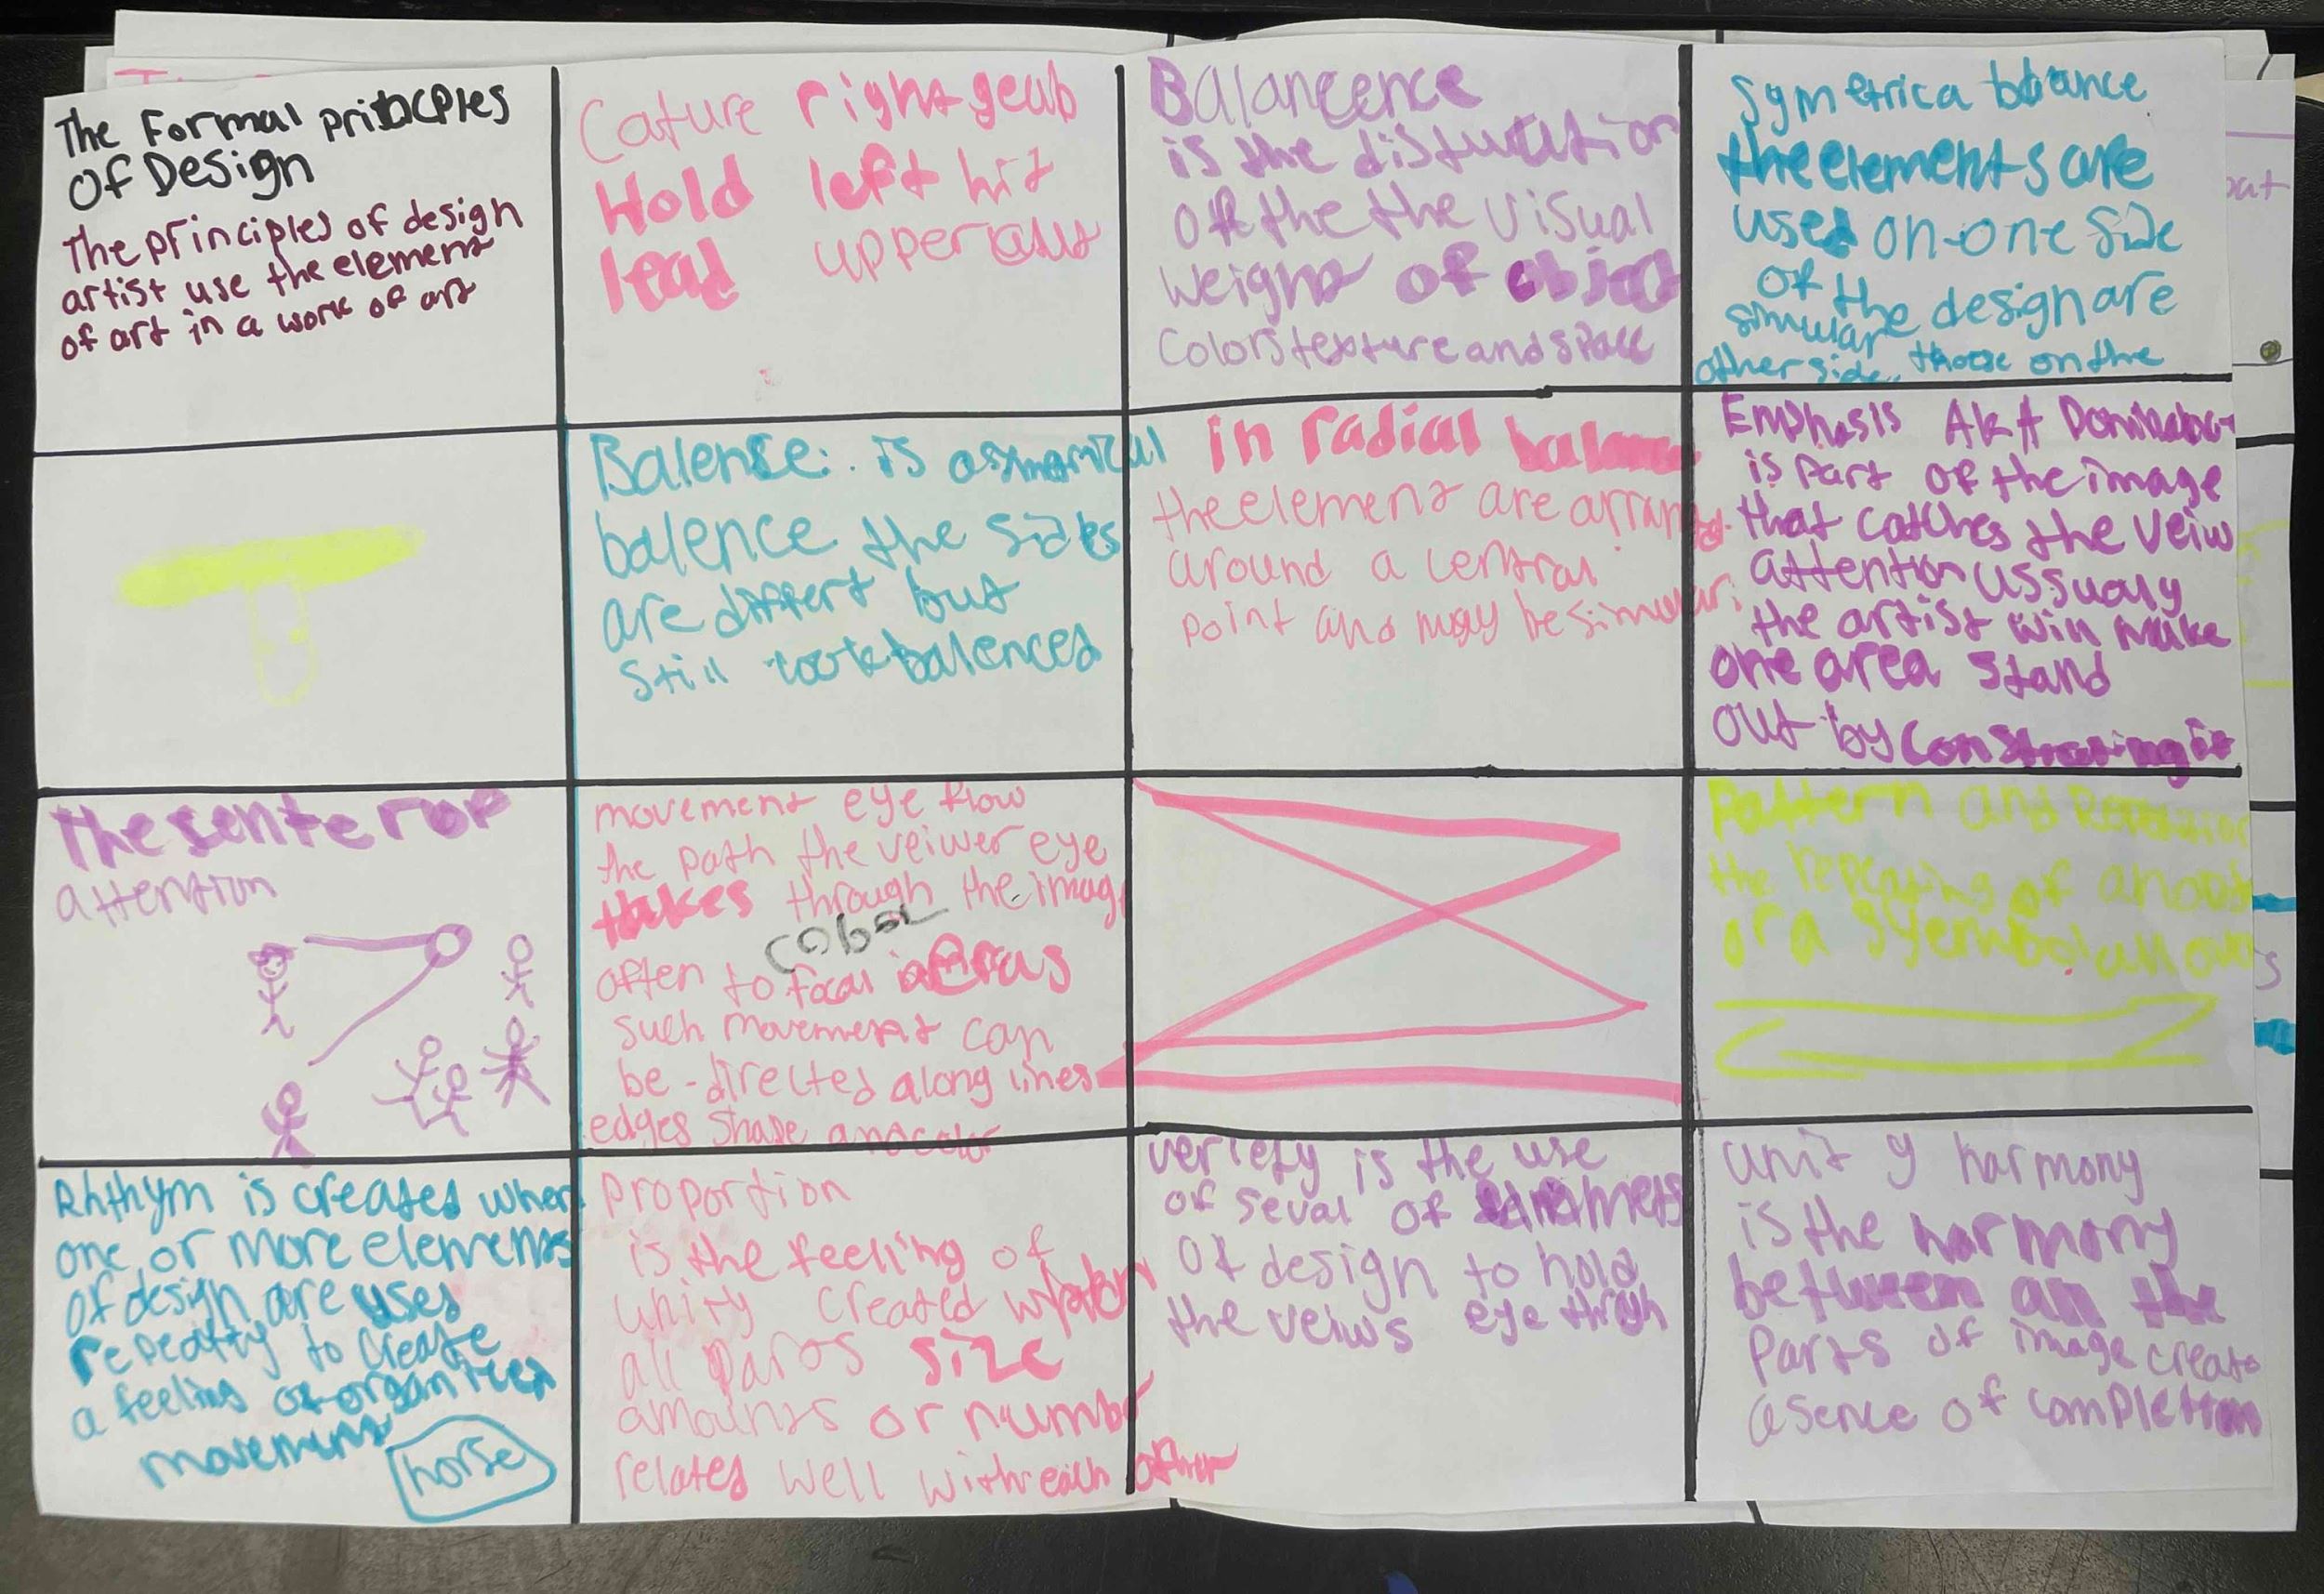 The Formal
Of Design
The principles of design
artist use the element
of art in a work of art
Cature right
Hold left hit
lead
Balancence
is the
of the the visual
weight of object
Colors texture and space
Symetrica
the elements are
used on one side
of the design are
simular those on the
other side.
Balense: is
balence the sides
are but
still look balenced
in radial
the element are arranged.
around a central
point and may be simular
Emphasis AKA
is part of the image
that catches the veiw
attention ussualy
the artist will make
one area stand
out by
The senter of
attention
movement eye flow
the path the veiwer eye
takes through the image
often to focal
such movement can
be - directed along lines
edges shape and color
Pattern and
the repeating of
or a all over
Rhthym is created when
one or more elements
of design are used
to create
a feeling of
movement
horse
Proportion
is the feeling of
unity created when
all parts size
amounts or number
related well with each other
veriety is the use
of seval of
of design to hold
the veiws eye
unity harmony
is the harmony
between all the
parts of image create
a sence of completion